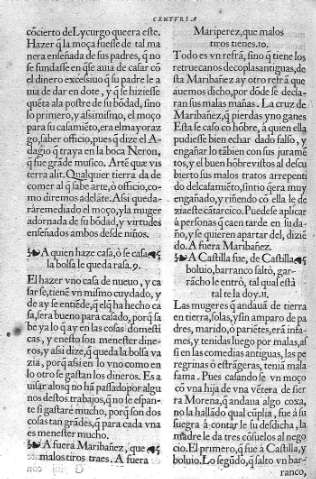 CENTVRIA
cōcierto del Lycurgo queera este.
Hazer q̄ la moça fuesse de tal ma
nera enseñada de sus padres, q̄ no
se fundasse en q̄ se auia de casar cō
el dinero excessiuo q̄ su padre le a
uia de dar en dote, y q̄ le hiziesse
quēta ala postre de su bōdad, sino
lo primero, y assimismo, el moço
para su casamiēto, era el mayoraz
go, saber officio, pues q̄ dize el A-
dagio q̄ traya en la boca Neron,
q̄ fue grāde musico. Arte quæ vis
terra alit. Qualquier tierra da de
comer al q̄ sabe arte, ò officio, co-
mo diremos adelāte. Assi queda-
rà remediado el moço, y la muger
adornada de su bōdad, y virtudes
enseñados ambos desde niños.
A quien haze casa, ò se casa
la bolsa le queda rasa. 9.
El hazer vno casa de nueuo, y ca
sarse, tienē vn mismo cuydado, y
de ay se entiēde, q̄ el q̄ ha hecho ca
sa, sera bueno para casado, porq̄ sa
be ya lo q̄ ay en las cosas domesti
cas, y en esto son menester dine-
ros, y assi dize, q̄ queda la bolsa va
zia, porq̄ assi en lo vno como en
lo otro se gastan los dineros. Es a
uisar alos q̄ no hā passado por algu
nos destos trabajos, q̄ no se espan-
te si gastarē mucho, porq̄ son dos
cosas tan grādes, q̄ para cada vna
es menester mucho.
A fuera Maribañez, que
malos tiros traes. A fuera
Mariperez, que malos
tiros tienes. 10.
Todo es vn refrā, sino q̄ tiene los
retruecanos de coplas antiguas, de
sta Maribañez ay otro refrā que
auemos dicho, por dōde se decla
ran sus malas mañas. La cruz de
Maribañez, q̄ pierdas y no ganes
Esta se caso cō hōbre, à quien ella
pudiesse bien echar dado falso, y
engañar lo tābien con sus juramē
tos, y el buen hōbre vistos al descu
bierto sus malos tratos arrepenti
do del casamiēto, sintio q̄ era muy
engañado, y riñendo cō ella le de
zia este cātarcico. Puedese aplicar
à personas q̄ caen tarde en su da
ño, y se quieren apartar del, dizié
do. A fuera Maribañez.
A Castilla fue, de Castilla
boluio, barranco saltò, gar-
rācho le entrò, tal qual està
tal te la doy. 11.
Las mugeres q̄ andauā de tierra
en tierra, solas, y sin amparo de pa
dres, marido, o pariētes, erā infa-
mes, y tenidas luego por malas, as
si en las comedias antiguas, las pe
regrinas ò estrāgeras, teniā mala
fama. Pues casando se vn moço
cō vna hija de vna vētera de sier
ra Morena, q̄ andaua algo coxa,
no la hallādo qual cūplia, fue à su
suegra à contar le su desdicha, la
madre le da tres cōsuelos al nego
cio. El primero, q̄ fue à Castilla, y
boluio. Lo segūdo, q̄ salto vn bar-
ranco,